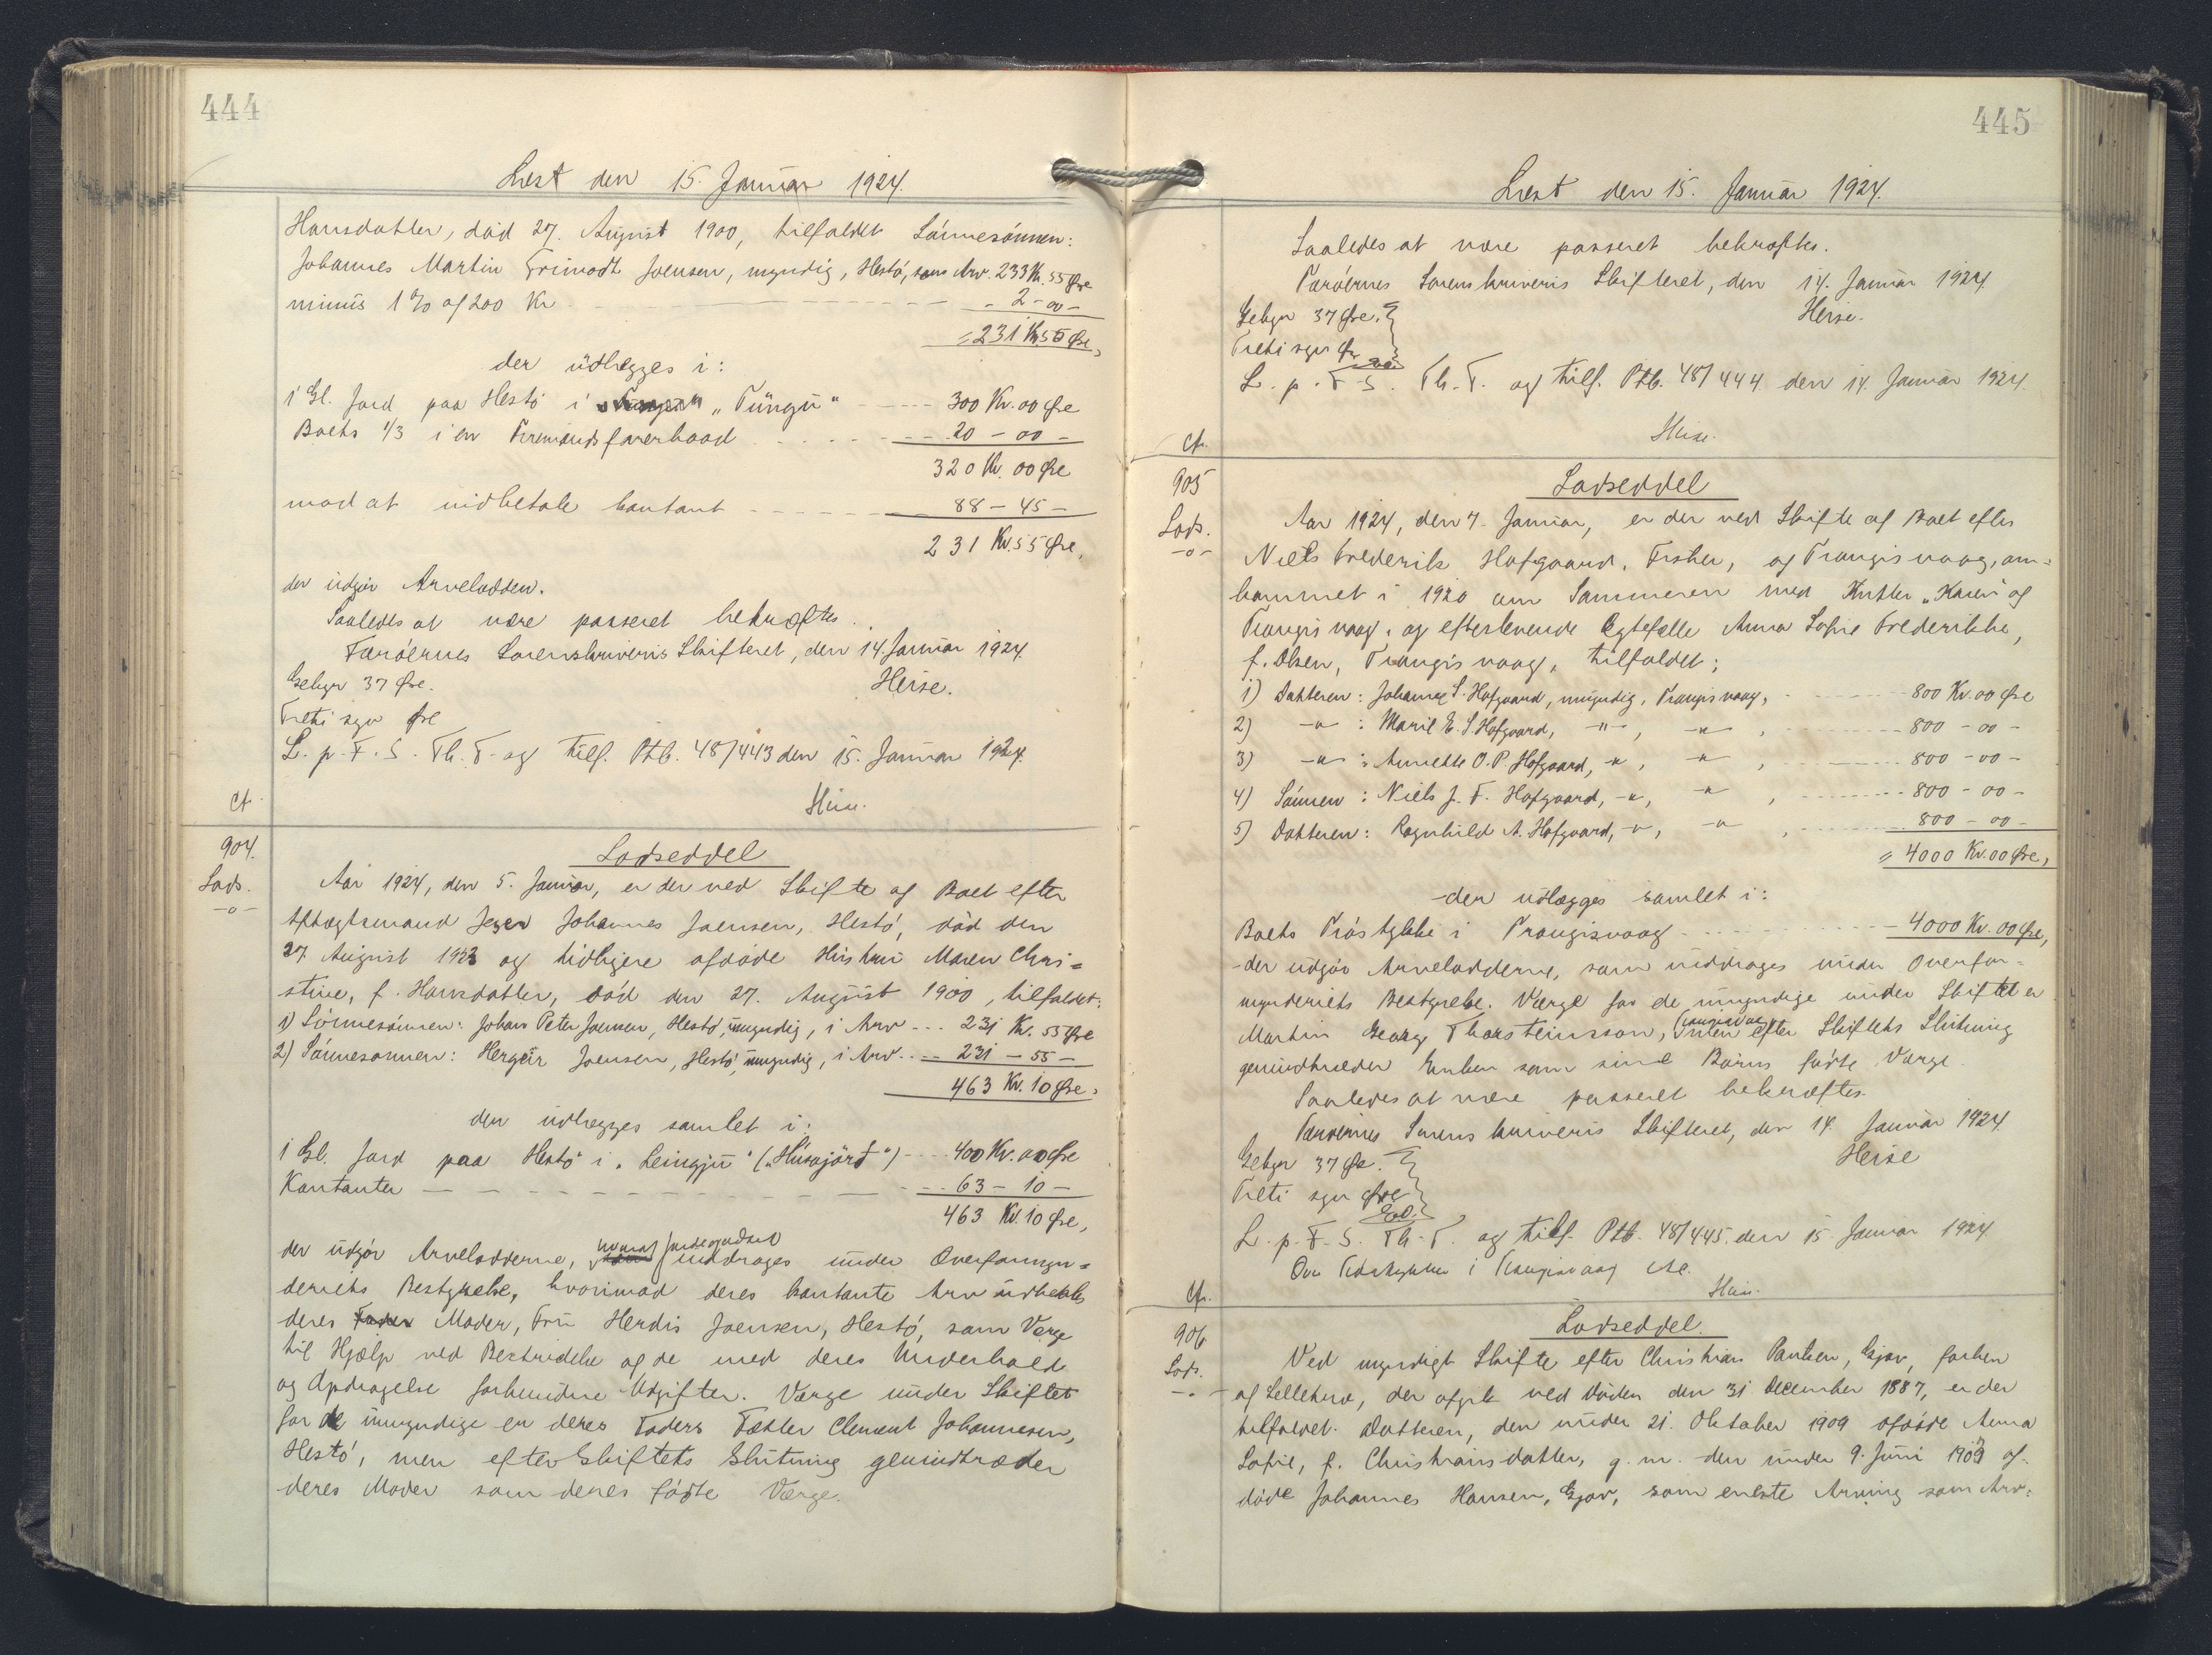 444
Læst den 15. Januar 1924.
Hansdatter, död 27. August 1900, tilfaldet Sönnesönnen:
Johannes Martin Trimodt Joensen, myndig, Hestö, som Arv. 233 Kr. 55 Øre
minus 1 % af 200 Kr - 2 - 00 -
= 231 Kr 55 Øre,
der udlægges i:
1 Gl. Jord paa Hestö i "Tüngu" - 300 Kr. 00 Øre
Boets 1/3 i en Firemandsfarerbaad - 20 - 00 -
320 Kr. 00 Øre
mod at indbetale kontant - 88 - 45 -
231 Kr. 55 Øre,
der udgör Arvelodden.
Saaledes at være passeret bekræftes.
Færöernes Sorenskriveris Skifteret, den 14. Januar 1924.
Gebyr 37 Øre. Heise.
Freti syv Øre
L. p. F. S. Th. T. og tilf. Ptb. 48/443 den 15. Januar 1924.
Heise.
Cf.
904.
Lods.
-o-
Lodseddel
Aar 1924, den 5. Januar, er der ved Skifte af Boet efter
Aftægtsmand Jeger Johannes Joensen, Hestö, död den
27. August 1923 og tidligere afdöde Hustru Maren Chri=
stine, f. Hansdatter, död den 27. August 1900, tilfaldet:
1) Sönnesönnen: Johan Peter Joensen, Hestö, umyndig, i Arv --- 231 Kr. 55 Øre
2) Sönnesönnen: Hergeir Joensen, Hestö, umyndig, i Arv --- 231 - 55 -
463 Kr. 10 Øre,
der udlægges samlet i:
1 Gl. Jord paa Hestö i "Leingju" ("Húsajörd") --- 400 Kr. 00 Øre
Kontanter - 63 - 10 -
463 Kr. 10 Øre,
der udgör Arvelodderne, hvoraf Jordegodset inddrages under Overformyn=
deriets Bestyrelse, hvorimod deres kontante Arv udbetales
deres Moder, Fru Herdis Joensen, Hestö, som Værge
til Hjælp ved Bestridelse af de med deres Underhold
og Opdragelse forbundne Udgifter. Værge under Skiftet
for de umyndige er deres Faders Fætter Clement Johannesen,
Hestö, men efter Skiftets Slutning genindtræder
deres Moder som deres födte Værge.
445
Læst den 15. Januar 1924.
Saaledes at være passeret bekræftes.
Færöernes Sorenskriveris Skifteret, den 14. Januar 1924
Gebyr 37 Øre. Heise.
Freti syv Ør
L. p. F. S. Th. T. og tilf. Ptb. 48/444 den 14. Januar 1924.
Heise.
Cf.
905
Lods.
-o-
Lodseddel
Aar 1924, den 7. Januar, er der ved Skifte af Boet efter
Niels Frederik Hofgaard, Fisker, af Trangisvaag, om=
kommet i 1920 om Sommeren med Kutter "Karin" af
Trangisvaag, og efterlevende Egtefælle Anna Sofie Frederikke,
f. Olsen, Trangisvaag, tilfaldet:
1) Datteren: Johanna S. Hofgaard, umyndig, Trangisvaag, 800 Kr. 00 Øre
2) -"- : Marie E. S. Hofgaard, -"-, -"-, 800 - 00 -
3) -"- : Annette O. P. Hofgaard, -"-, -"-, 800 - 00 -
4) Sönnen: Niels J. F. Hofgaard, -"-, -"-, 800 - 00 -
5) Datteren: Ragnhild A. Hofgaard, -"-, -"-, 800 - 00 -
= 4000 Kr. 00 Øre,
der udlægges samlet i:
Boets Tröstykke i Trangisvaag - 4000 Kr. 00 Øre,
der udgör Arvelodderne, som inddrages under Overfor=
mynderiets Bestyrelse. Værge for de umyndige under Skiftet er
Martin Georg Thorsteinsson, Trangisvaag, men efter Skiftets Slutning
genindtræder Enken som sine Börns födte Værge.
Saaledes at være passeret bekræftes.
Færöernes Sorenskriveris Skifteret, den 14. Januar 1924.
Gebyr 37 Øre. Heise
Freti syv Øre
L. p. F. S. Th. T. og tilf. Ptb. 48/445 den 15. Januar 1924.
Ovr i Trangisvaag
Heise.
Cfr.
906
Lods.
-o-
Lodseddel.
Ved myndigt Skifte efter Christian Paulsen, Gjov, forhen
af Selletræ, der afgik ved Döden den 31. December 1887, er der
tilfaldet Datteren, den under 21. Oktober 1909 afdöde Anna
Sofie, f. Christiansdatter, g. m. den under 9. Juni 1909 af=
döde Johannes Hansen, Gjov, som eneste Arving som Arv: